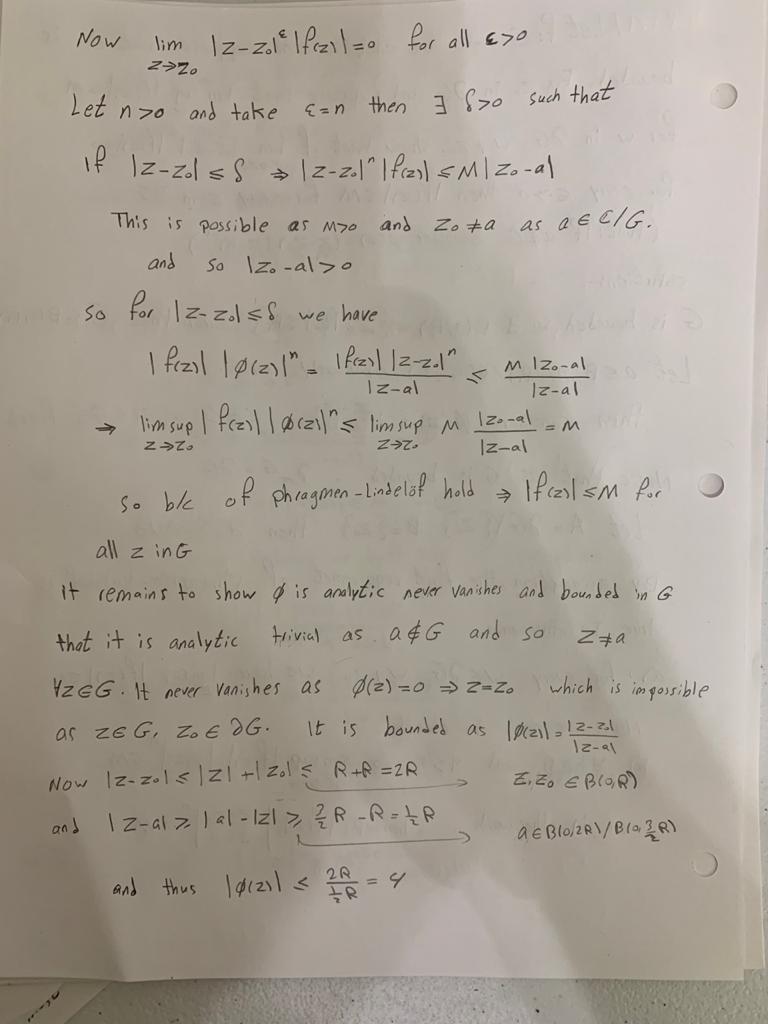 Now lim |z-z₀|^ε |f(z)| = 0 for all ε>0
z→z₀
Let n>0 and take ε=n then ∃ δ>0 such that
if |z-z₀| ≤ δ ⇒ |z-z₀|ⁿ |f(z)| ≤ M|z₀-a|
This is possible as M>0 and z₀≠a as a∈ℂ/G.
and so |z₀-a|>0
so for |z-z₀| ≤ δ we have
|f(z)| |φ(z)|ⁿ = |f(z)| |z-z₀|ⁿ / |z-a| ≤ M |z₀-a| / |z-a|
⇒ lim sup |f(z)| |φ(z)|ⁿ ≤ lim sup M |z₀-a| / |z-a| = M
z→z₀ z→z₀
so b/c of phragmen-Lindelöf hold ⇒ |f(z)| ≤ M for
all z in G
it remains to show φ is analytic never vanishes and bounded in G
that it is analytic trivial as a∉G and so z≠a
∀z∈G. It never vanishes as φ(z)=0 ⇒ z=z₀ which is impossible
as z∈G, z₀∈∂G. It is bounded as |φ(z)| = |z-z₀| / |z-a|
Now |z-z₀| ≤ |z|+|z₀| ≤ R+R=2R z,z₀ ∈ B(0,R)
and |z-a| ≥ |a|-|z| ≥ 3/2 R - R = 1/2 R a∈B(0,2R)/B(0,3/2 R)
and thus |φ(z)| ≤ 2R / 1/2 R = 4